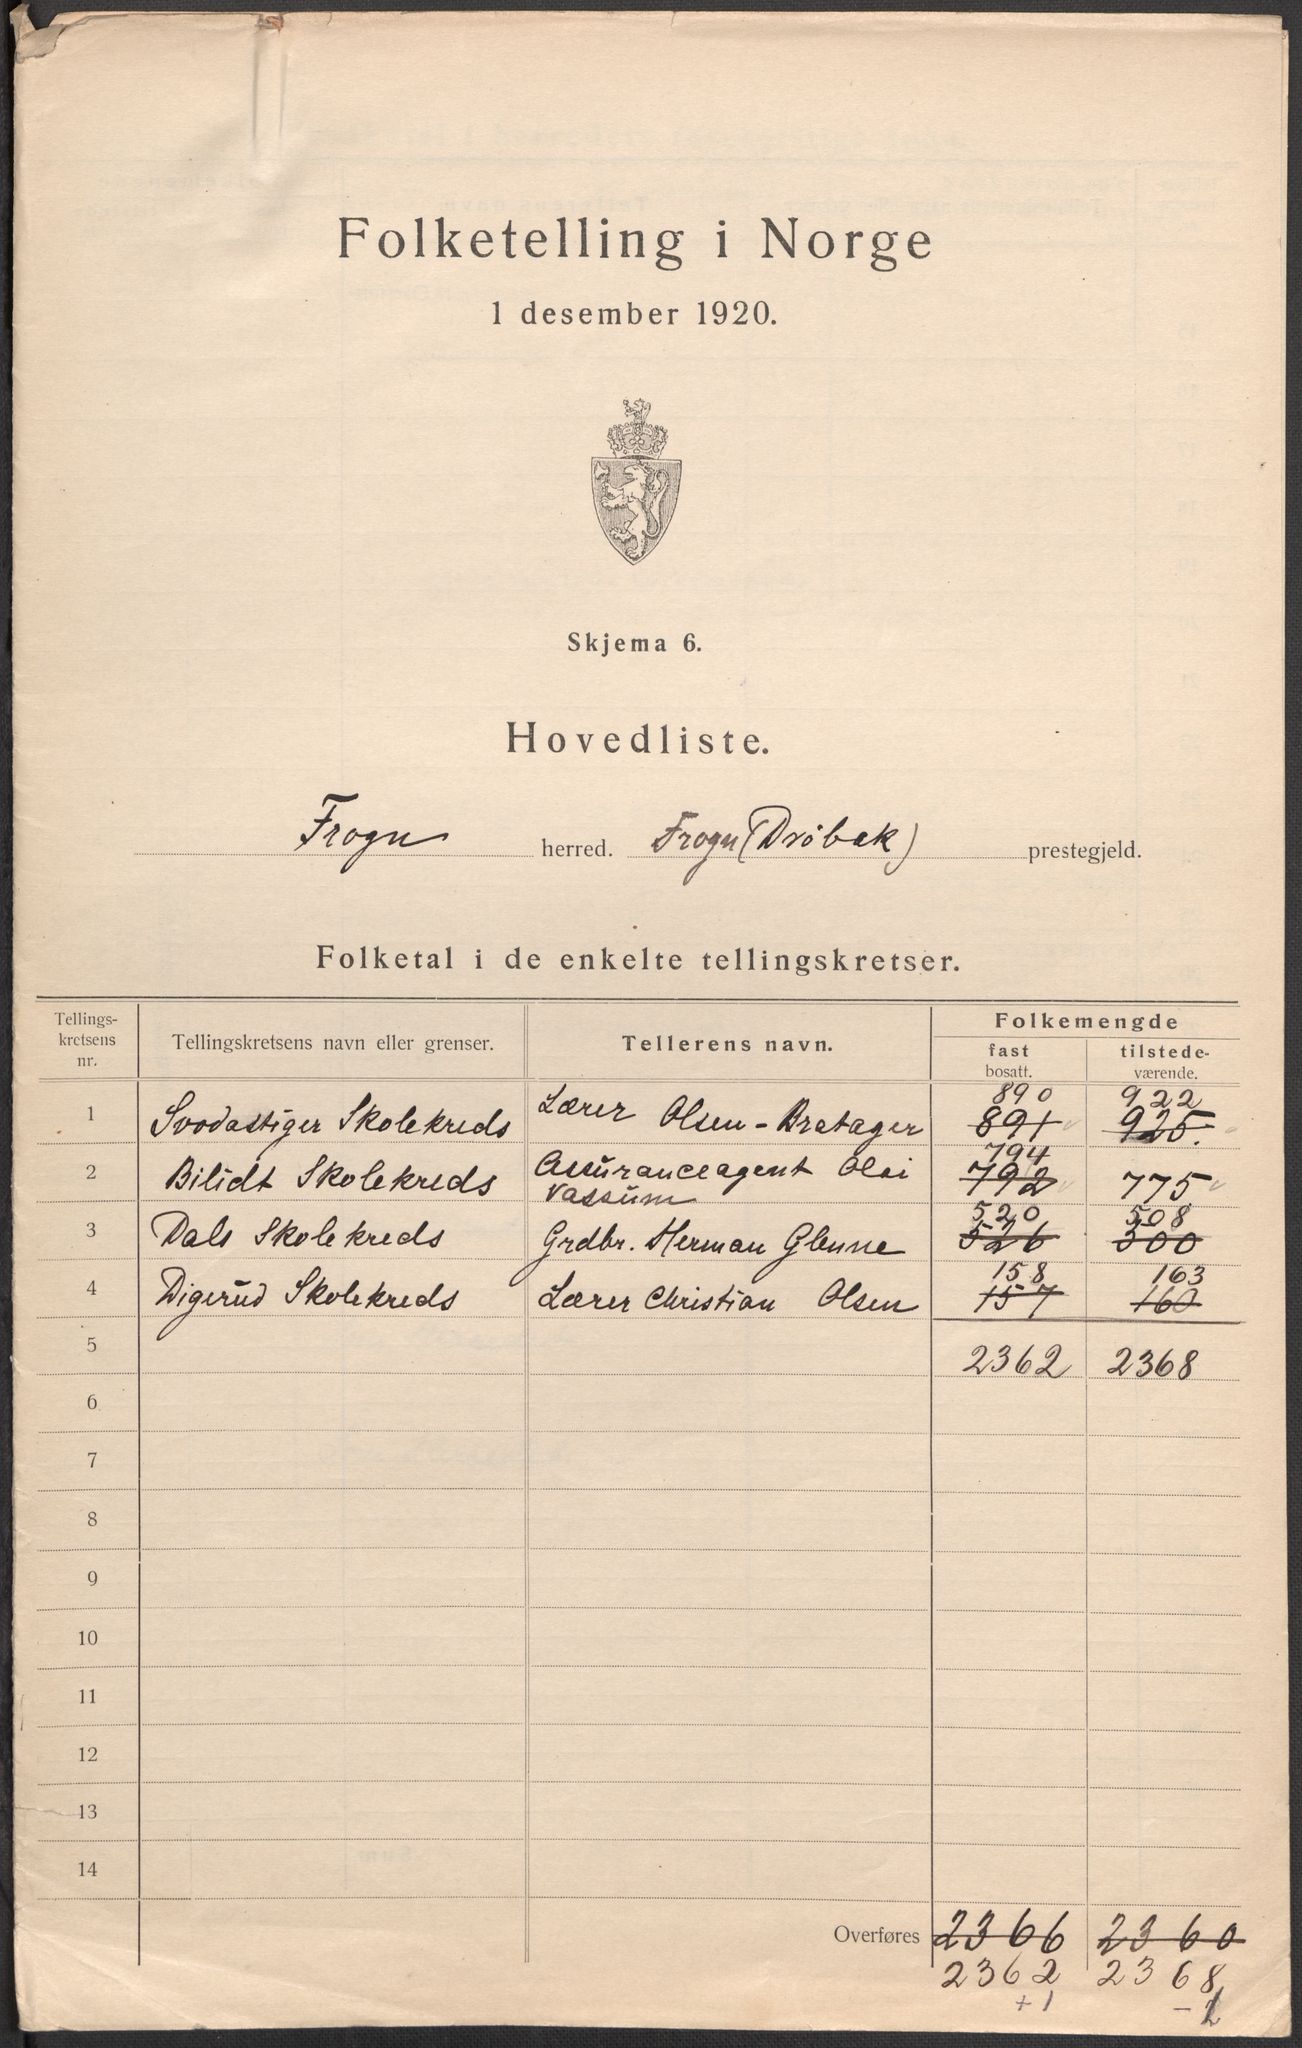 Folketelling i Norge
1 desember 1920.
Skjema 6.
Hovedliste.
Frogn herred. Frogn (Drøbak) prestegjeld.
Folketal i de enkelte tellingskretser.
Tellings-
kretsens
nr.
Tellingskretsens navn eller grenser.
Tellerens navn.
Folkemengde
fast
bosatt.
tilstede-
værende.
890 922
1 Skolekreds Lærer Olsen-Bratager 891 925.
794
2 Bilidt Skolekreds Assuranceagent 792 775
Vassum
520 508
3 Dals Skolekreds Grdbr. Herman Glenne 526 500
158 163
4 Digerud Skolekreds Lærer Christian Olsen 157 160
5 2362 2368
6
7
8
9
10
11
12
13
14
Overføres 2366 2360
2362 2368
+1